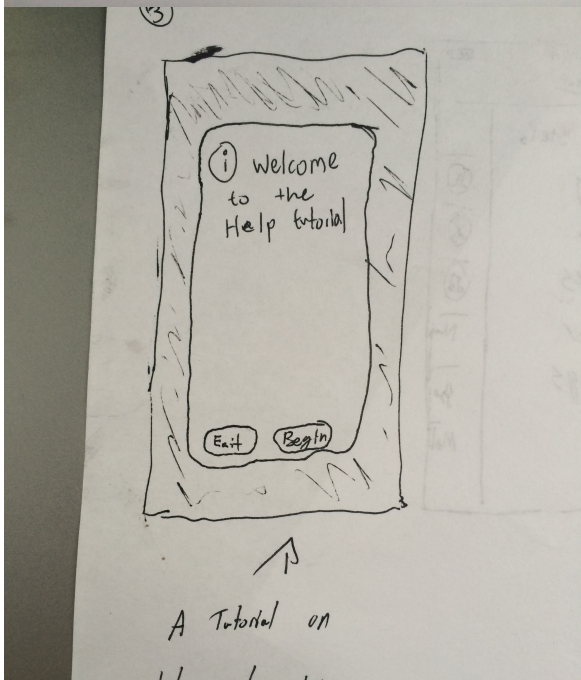 3
i Welcome
to the
Help tutorial
Exit Begin
A Tutorial on